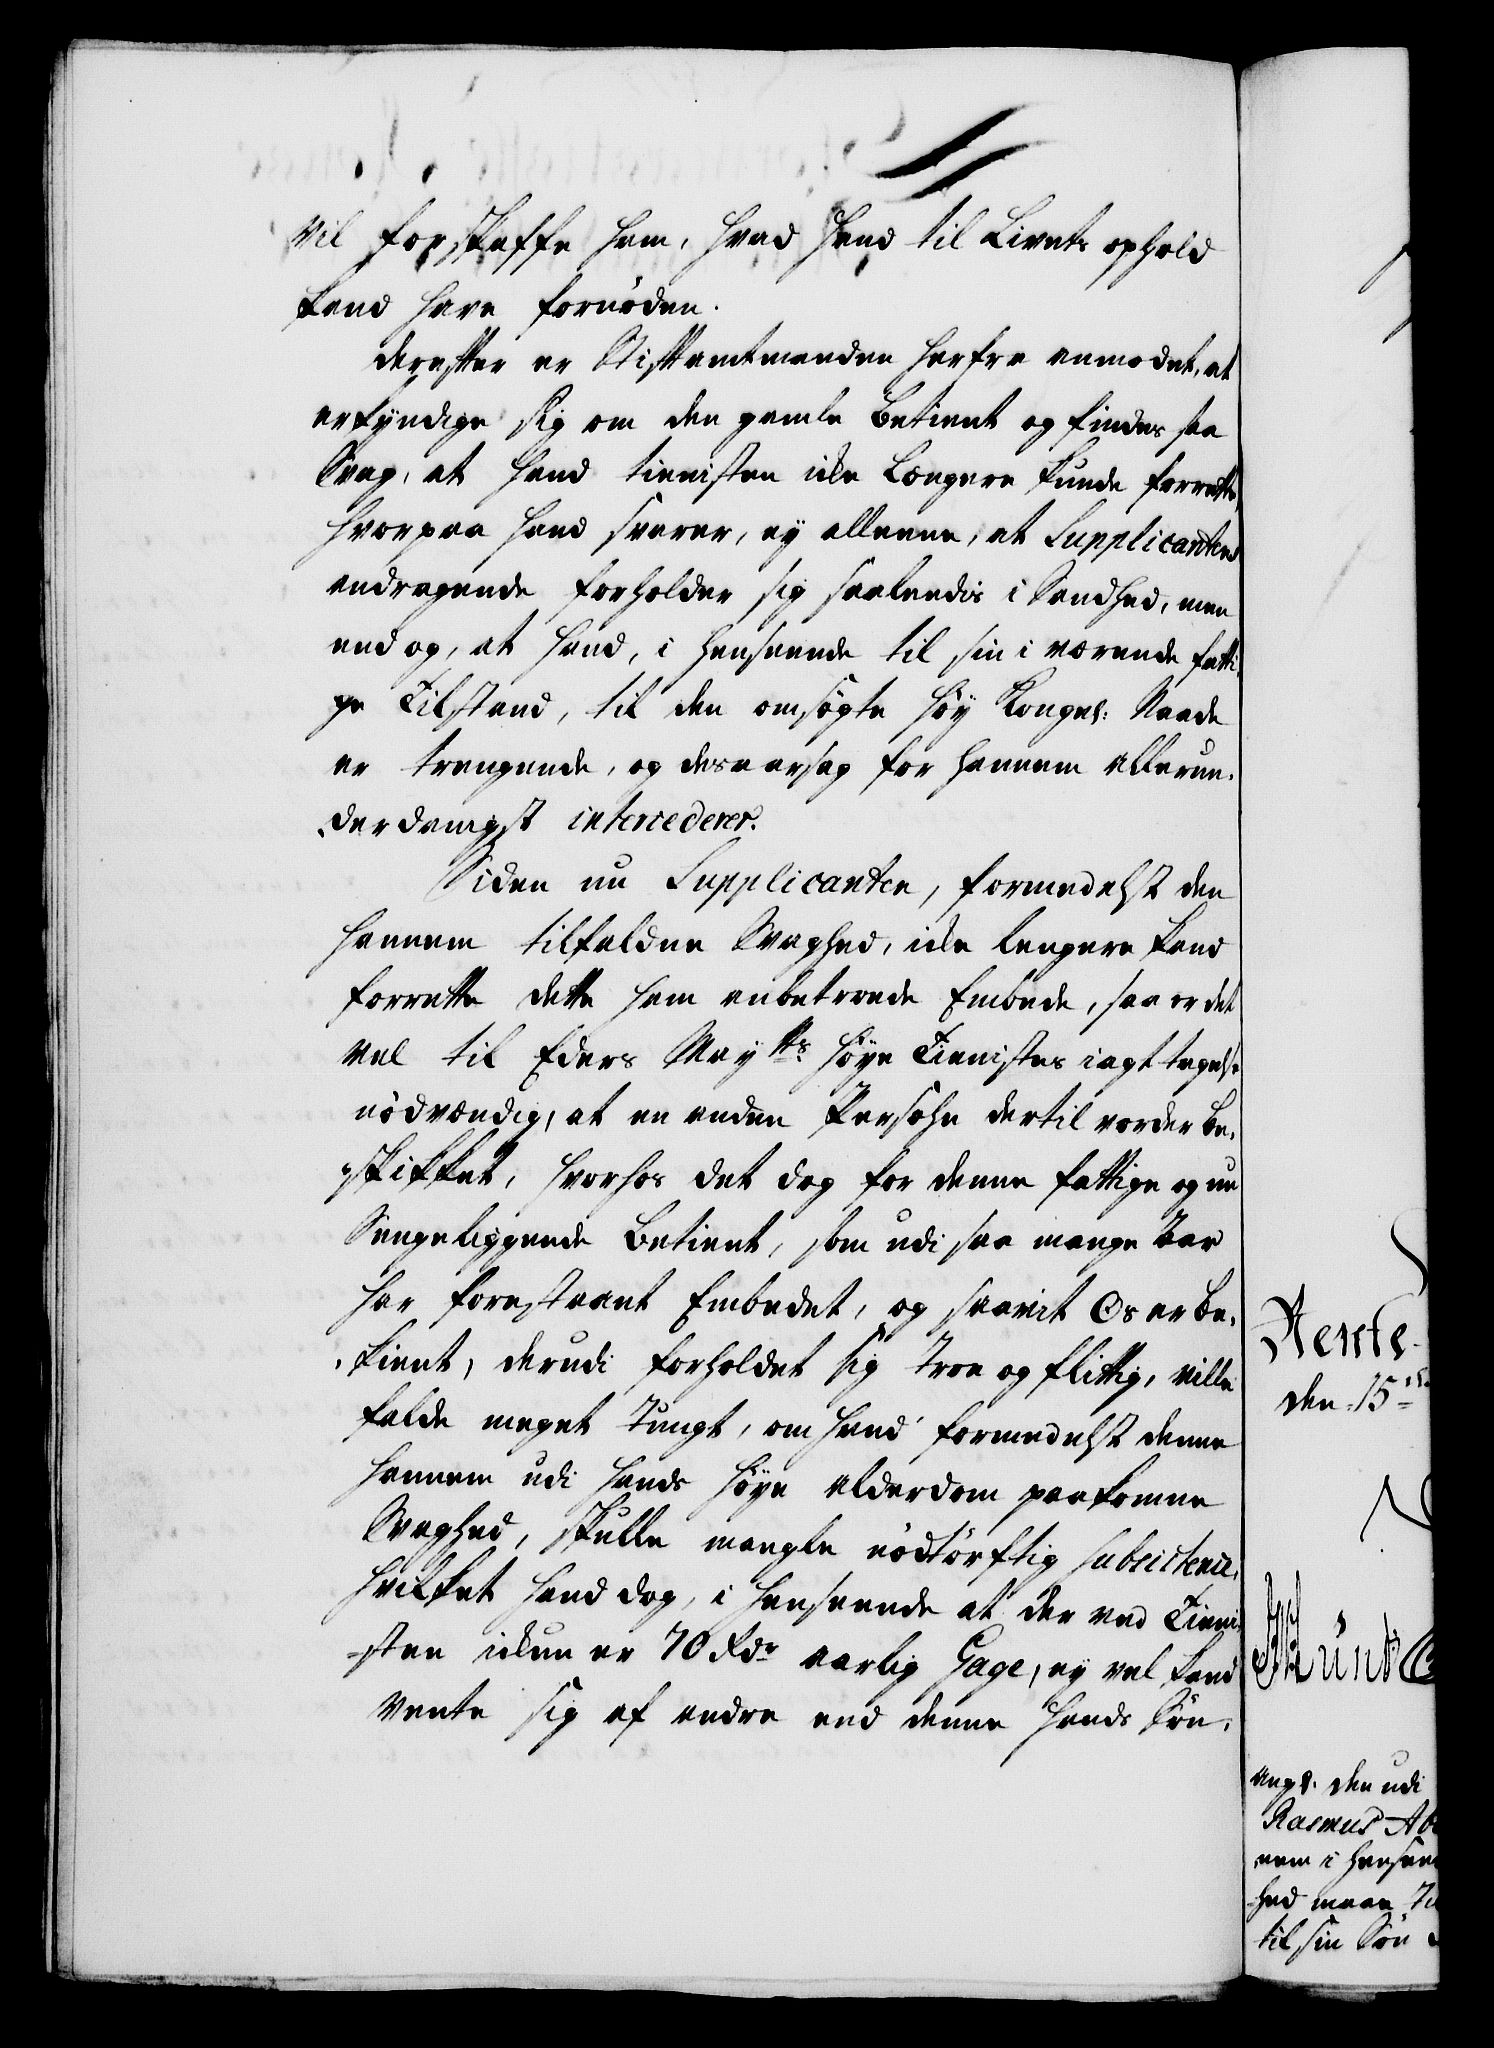 vil forskaffe ham, hvad hand til Livets ophold
kand have fornöden.
derefter er Stiftamtmanden herfra anmodet, at
erkyndige sig om den gamle Betient og findes saa
Svag, at hand tienisten icke Længere kunde forrette,
hvorpaa hand svarer, ey alleene, at Supplicantens
andragende forholder sig saaleedis i Sandhed, men
end og, at hand, i henseende til sin i værende fatti,
ge Tilstand, til den omsögte höy Kongel: Naade
er trengende, og desaarsag for hannem allerun,
derdanigst intercederer.
Siden nu Supplicanten, formedelst den
hannem tilfaldne Svaghed, icke lengere kand
forrette dette ham anbetroede Embede, saa er det
vel til Eders Mayts höye Tienistes iagttagelse
nödvændig, at en anden Persohn dertil vorder be,
skikket, hvorhos det dog for denne fattige og nu
Sengeliggende Betient, som udi saa mange Aar
har forestaaet Embedet, og saavit Os er be,
kient, derudi forholdet sig troe og flittig, ville
falde meget tungt, om hand formedelst denne
hannem udi hands höye alderdom paakomne
Svaghed, skulle mangle nödtörftig subsistence,
hvilket hand dog, i henseende at der ved Tieni,
sten ickun er 70 Rdr aarlig Gage, ey vel kand
vente sig af andre end denne hands Sön.
Rente-
den 15
angl. den udi
Rasmus
nem i hensee
hed maae
til sin Sön